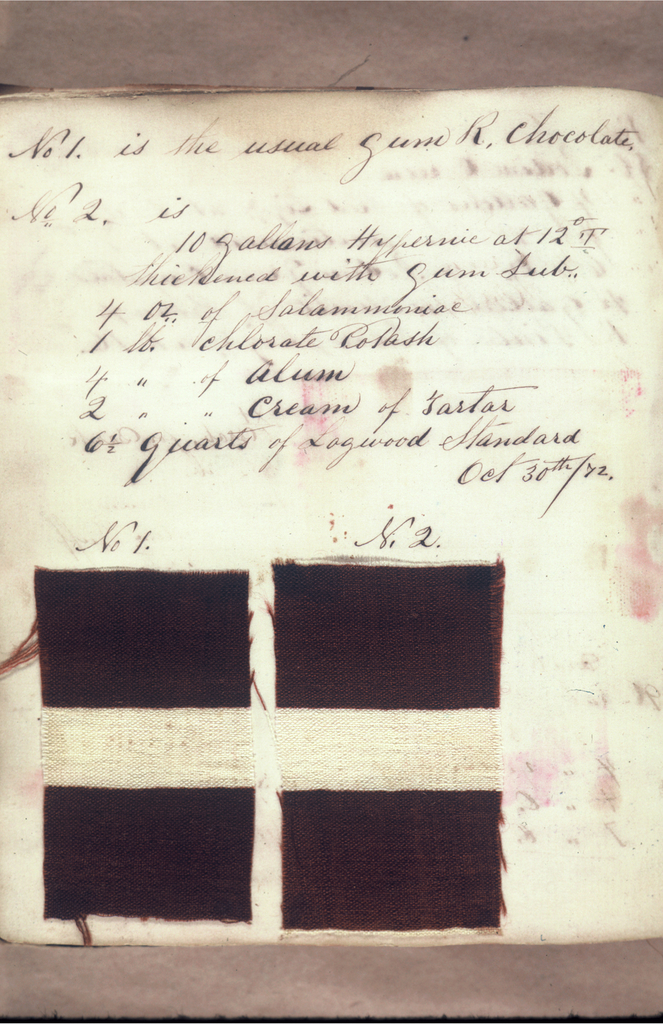 No 1. is the usual Gum R. Chocolate.
No 2. is
10 Gallans Hypernic at 12° T
thickened with Gum Sub..
4 oz. of Salammoniac
1 lb. Chlorate Potash
4 " of Alum
2 " " Cream of Tartar
6½ Quarts of Logwood Standard
Oct 30th/72.
No 1. No 2.